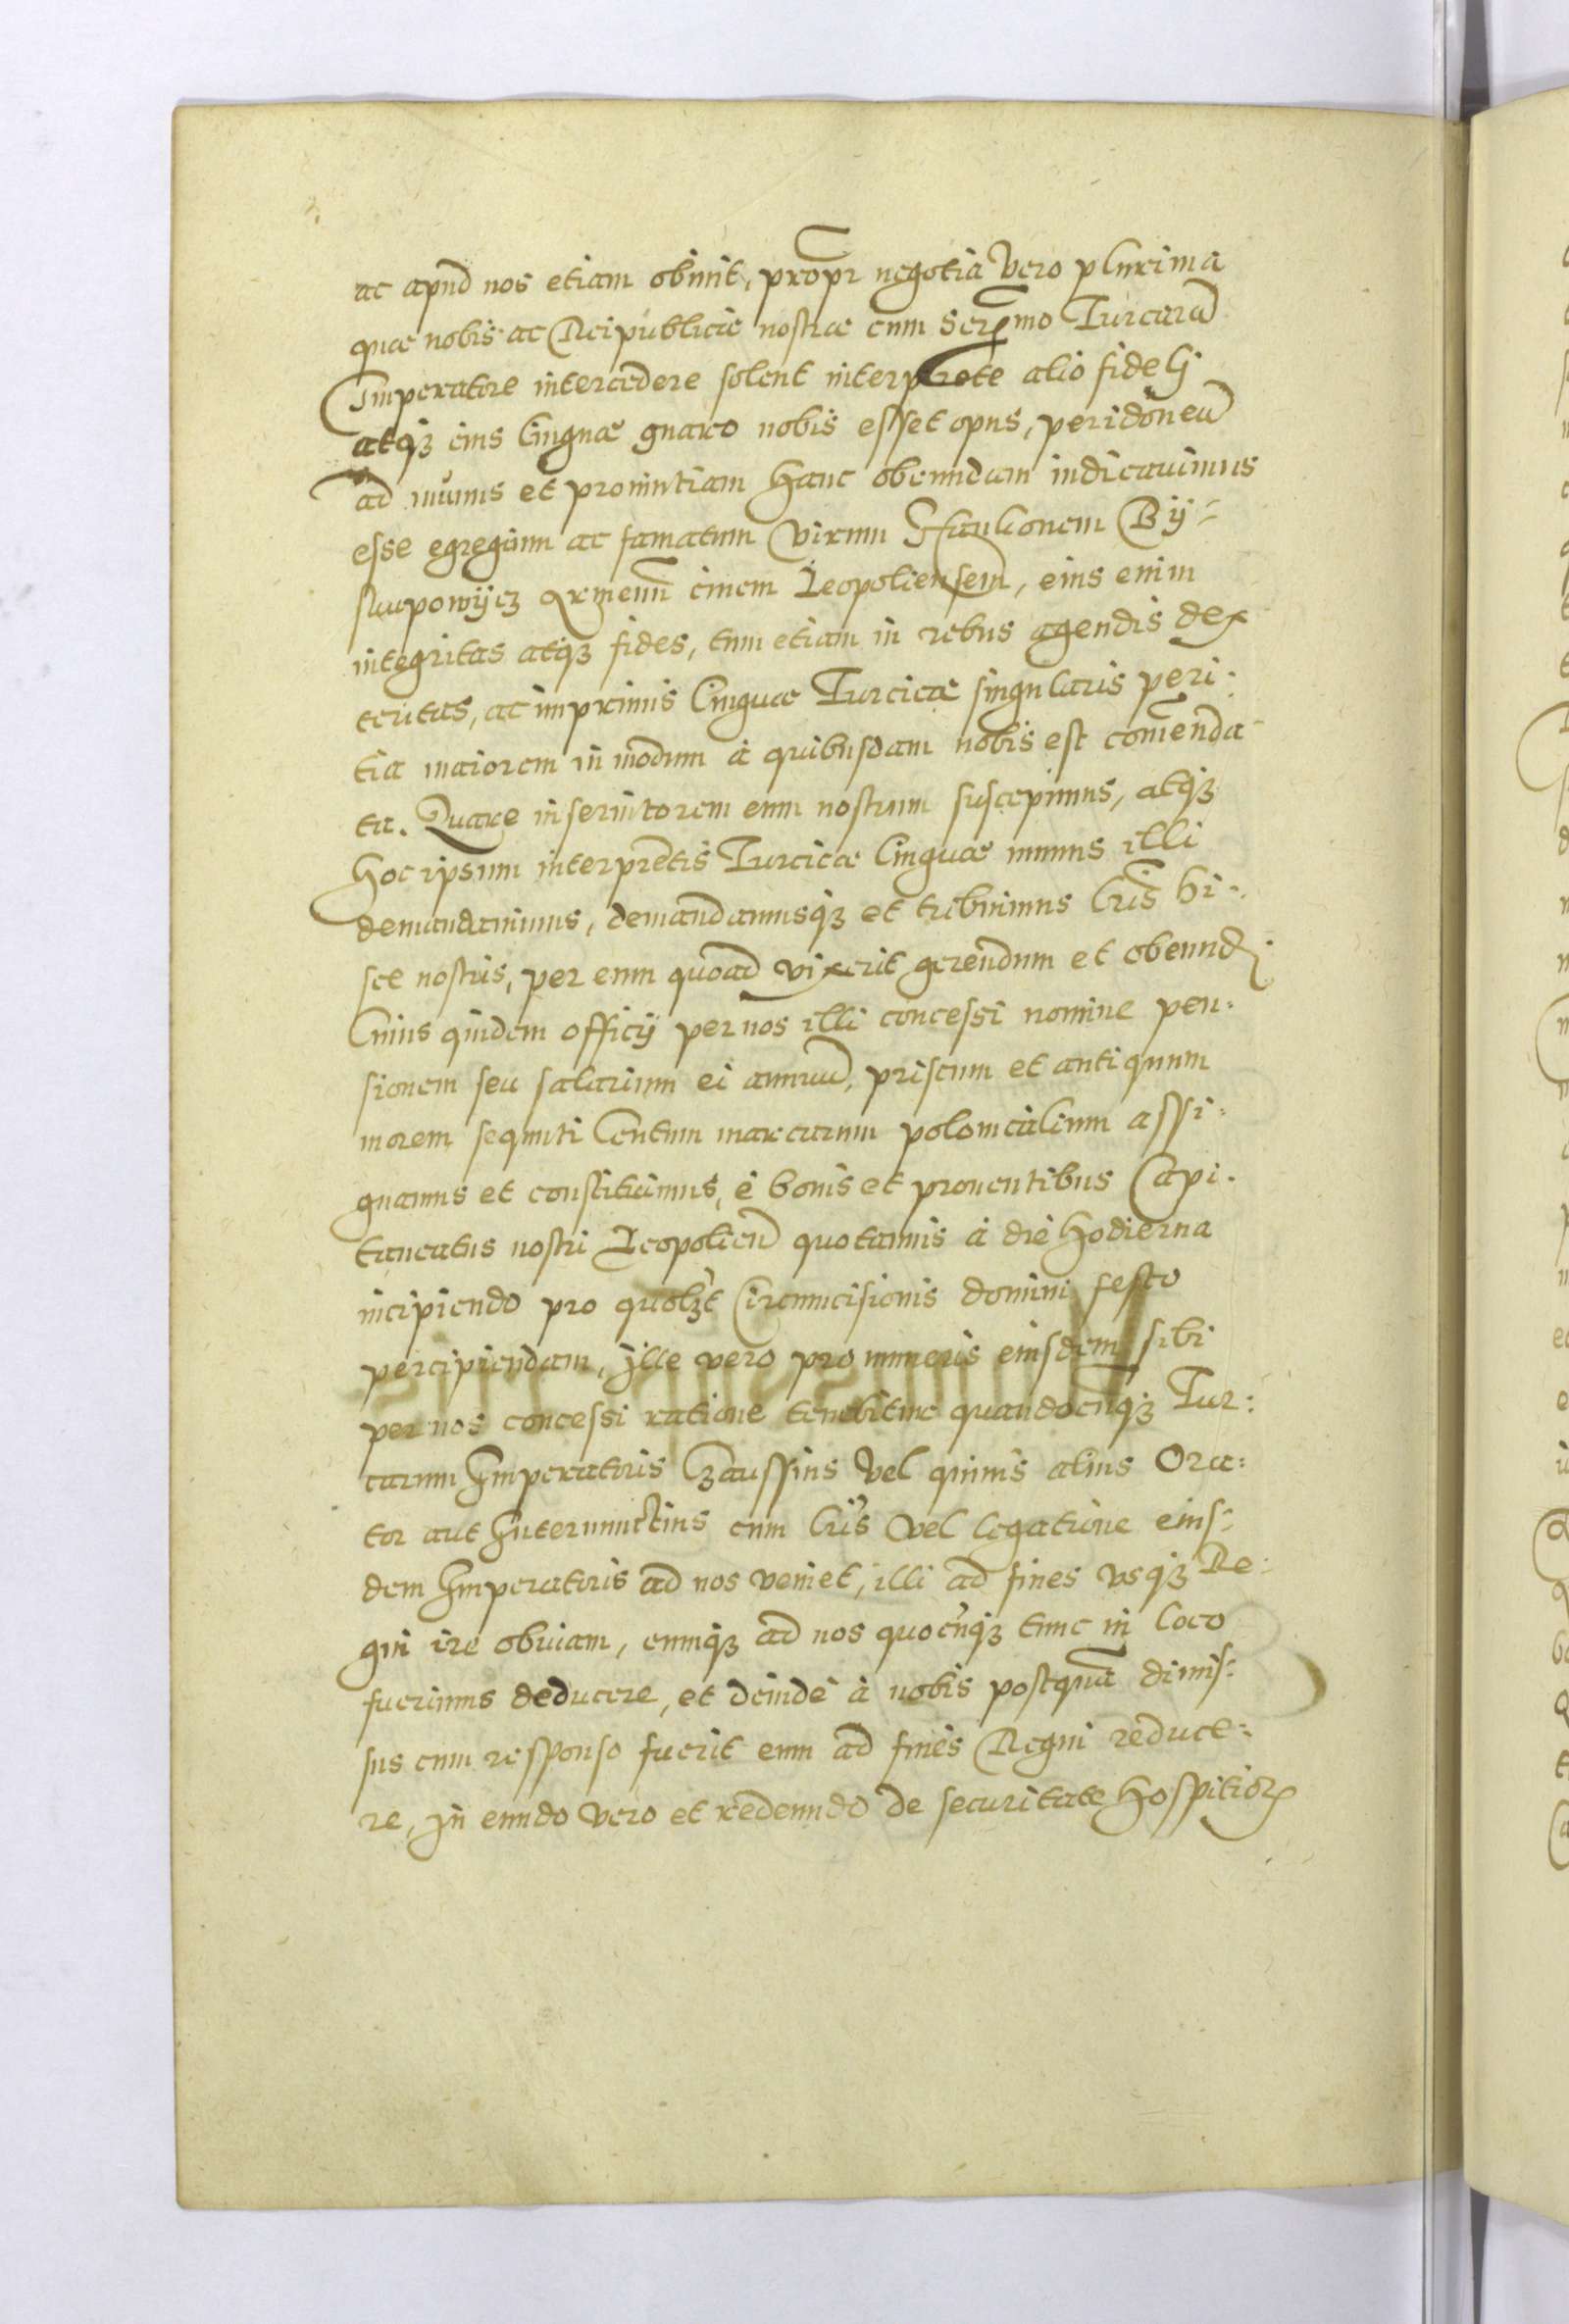 ac apud nos etiam obiuit, propr̃ negotia vero plurima
quae nobis ac Reipublicae nostrae cum Serᵐmo Turcarū
Imperatore intercedere solent interprete alio fideli
atqȝ eius linguae gnaro nobis esset opus, peridoneū
ad munus et prouintiam hanc obeundam iudicauimus
esse egregium ac famatum virum By=
powijcz Armenū ciuem Leopoliensem, eius enim
integritas atqȝ fides, tum etiam in rebus agendis dex
teritas, ac imprimis linguae Turcicae singularis peri:
tia maiorem in modum à quibusdam nobis est com̃enda
ta. Quare in seruitorem eum nostrum suscepimus, atqȝ
hoc ipsum interpretis Turcicae linguae munus illi
demandauimus, demandamusqȝ et tribuimus lr̃is hi:
sce nostris, per eum quoad vixerit gerendum et obeund.
Cuius quidem officij per nos illi concessi nomine pen:
sionem seu salarium ei annuū, priscum et antiquum
morem sequuti Centum marcarum polonicalium assi:
gnamus et constituimus, è bonis et prouentibus Capi:
taneatus nostri Leopolien̄ quotannis à die hodierna
incipiendo pro quolȝt Circumcisionis domini festo
percipiendam, ille vero pro muneris eiusdem sibi
per nos concessi ratione tenebitur quandocūqȝ Tur:
carum Imperatoris Czaussius vel quiuis alius Ora:
tor aut Internunctius cum lr̃is vel legatione eius=
dem Imperatoris ad nos veniet, illi ad fines vsqȝ Re:
gni ire obuiam, eumqȝ ad nos quocūqȝ tunc in loco
fuerimus deducere, et deinde à nobis postquā dimis=
sus cum responso fuerit eum ad fines Regni reduce:
re, in eundo vero et redeundo de securitate hospitioꝝ